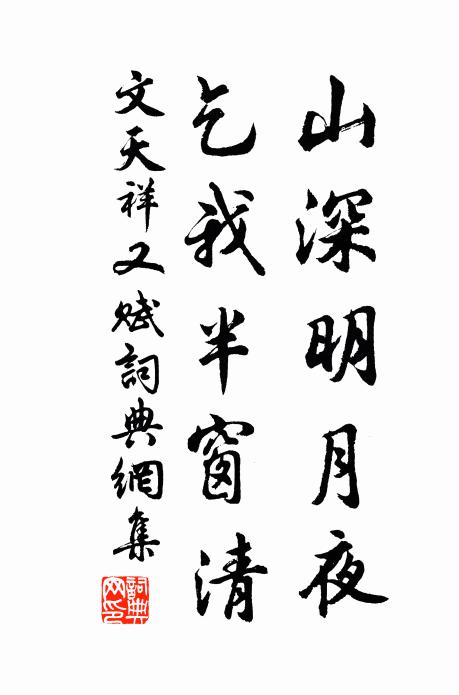 山深明月夜
乞我半窗清
文天祥又賦詞典網集
詞典網印